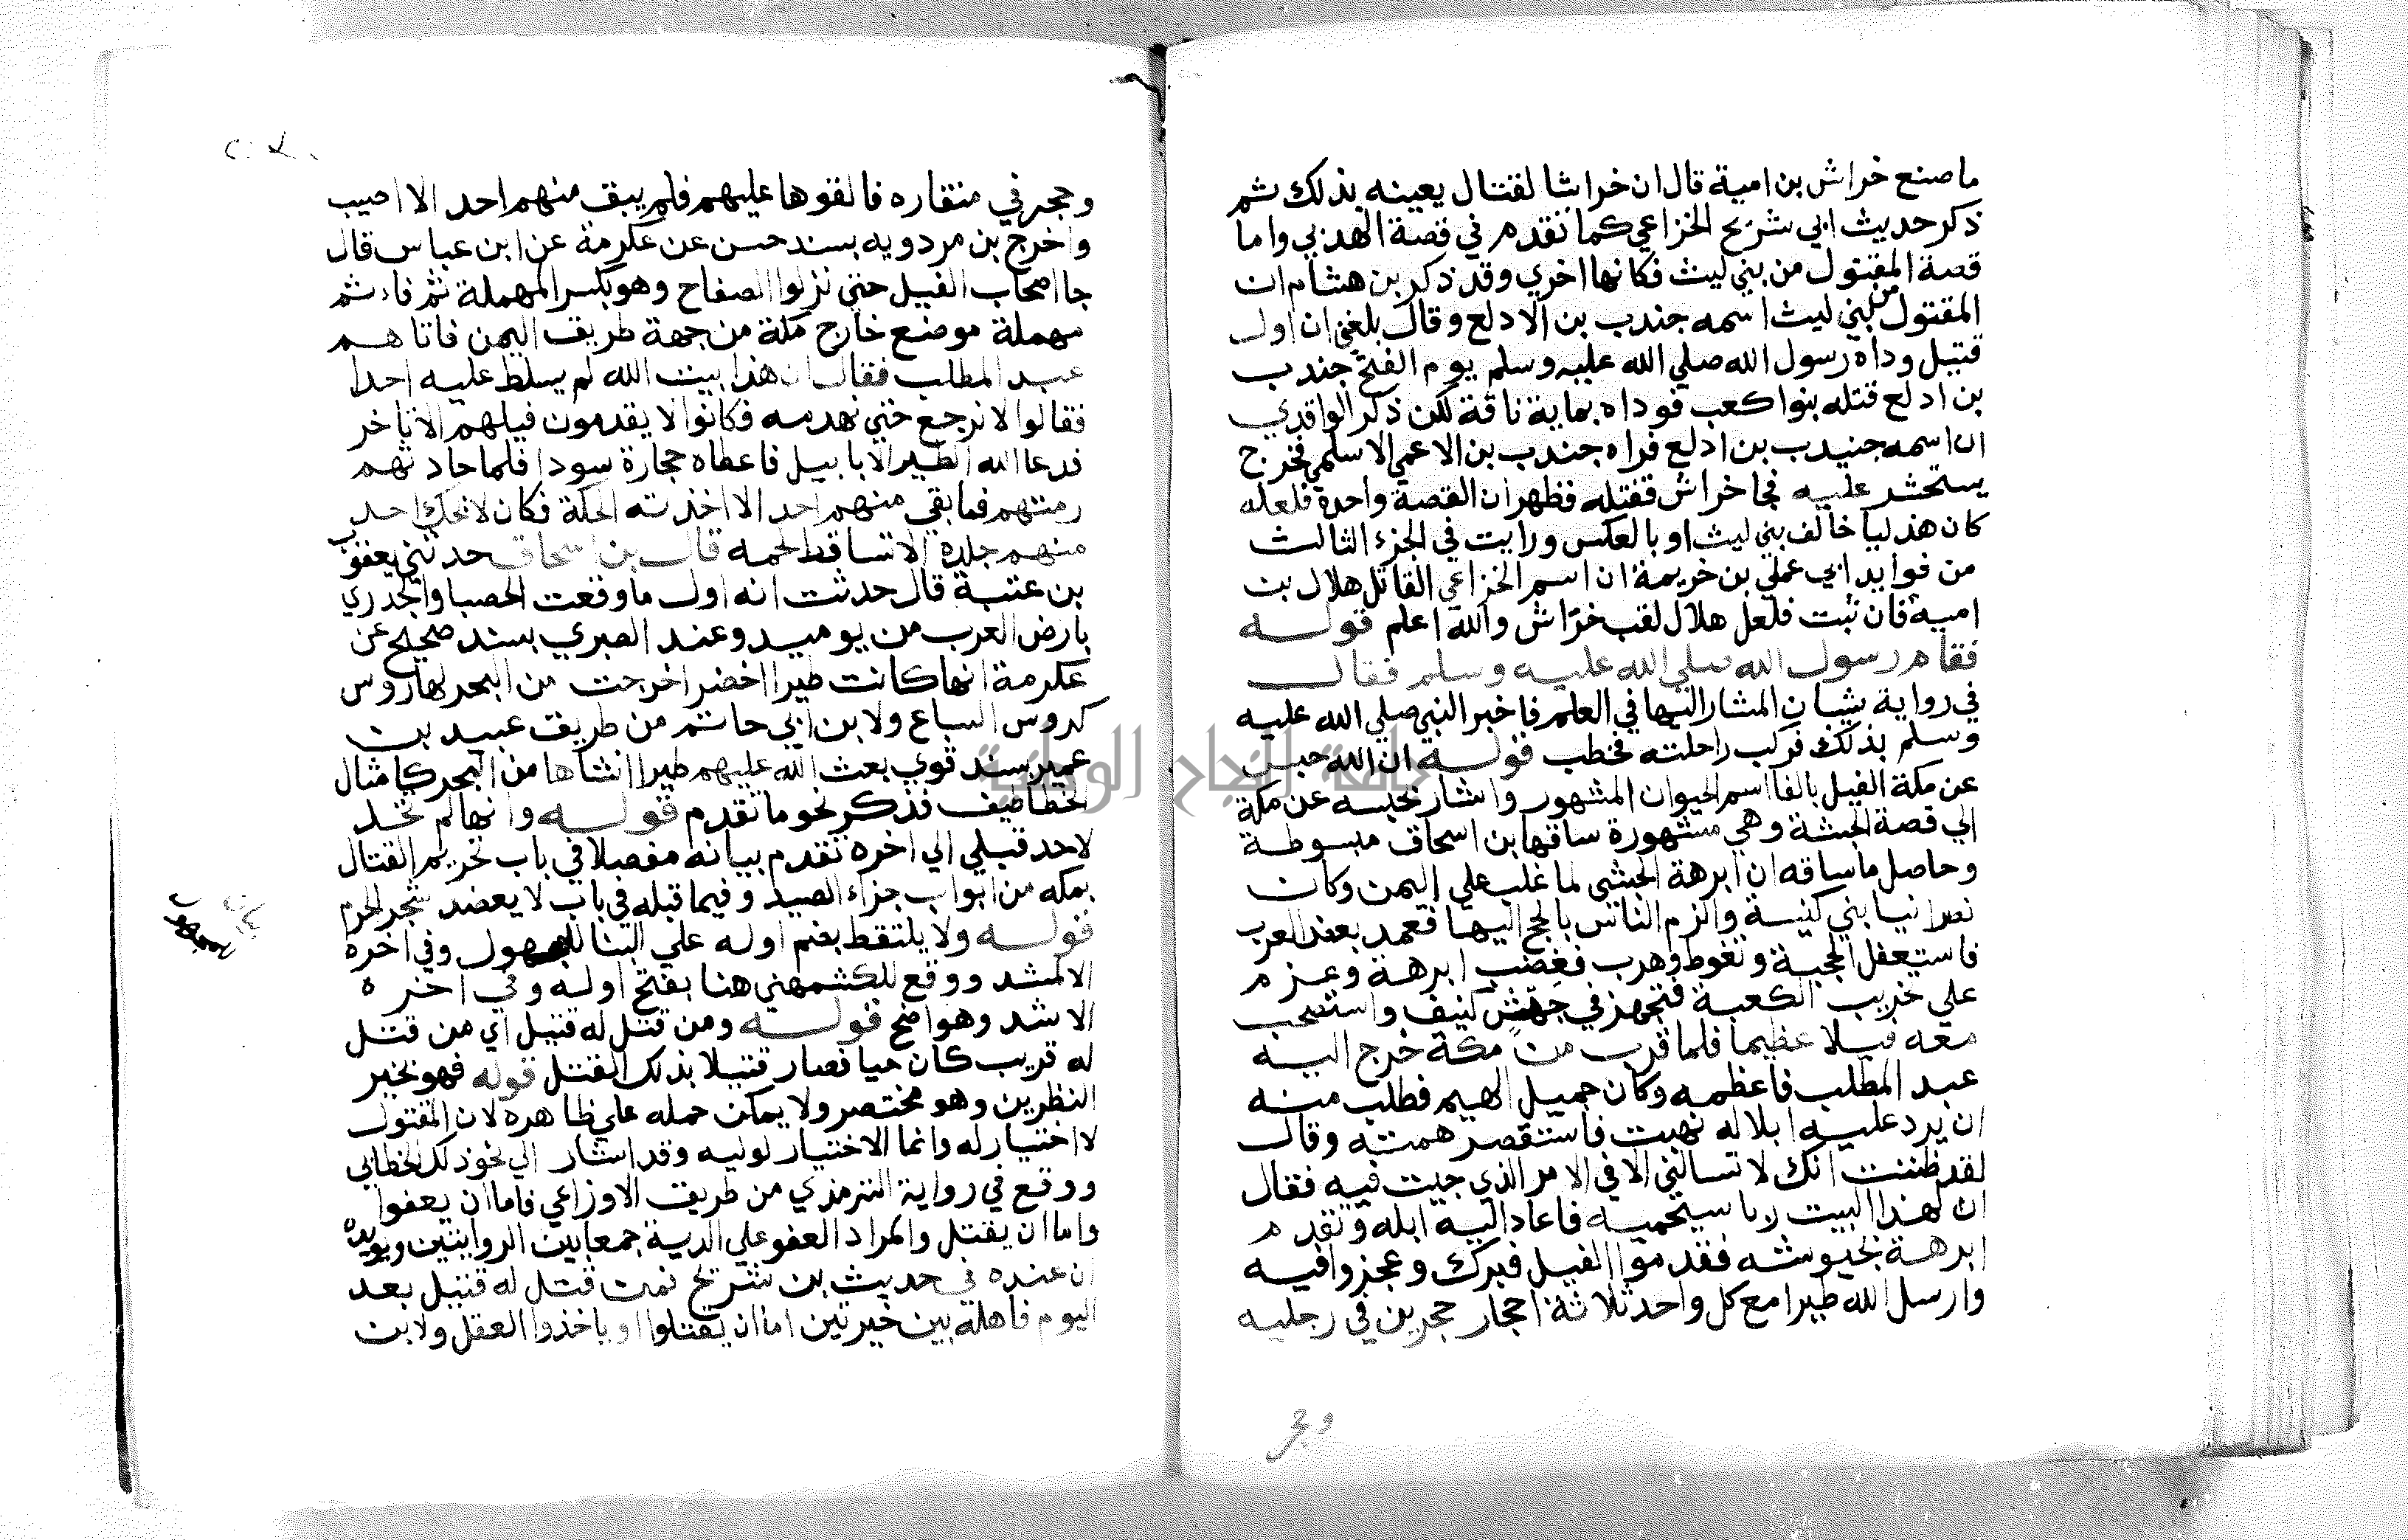 ما صنع خراش بن امية قال ان خراشا لقتال يعيبه بذلك ثم
ذكر حديث ابي شريح الخزاعي كما تقدم في قصة الهذبي واما
قصة المقتول من بني ليث فكانها اخري وقد ذكر بن هشام ان
المقتول من بني ليث اسمه جندب بن الادلع وقال بلغني ان اول
قتيل وداه رسول الله صلي الله عليه وسلم يوم الفتح جندب
بن ادلع قتله بنوا كعب فوداه بماية ناقة لكن ذكر الواقدي
ان اسمه جنيدب بن ادلع فراه جندب بن الاعمي الاسلمي فخرج
يستحشد عليه فجا خراش فقتله فظهر ان القصة واحدة فلعله
كان هذليا خالف بني ليث او بالعكس ورايت في الجزء الثالث
من فوايد ابي علي بن خريمة ان اسم الخزاعي القاتل هلال بن
امية فان ثبت فلعل هلال لقب خراش والله اعلم قوله
فقام رسول الله صلي الله عليه وسلم فقال
في رواية شيبان المشار اليها في العلم فاخبر النبي صلي الله عليه
وسلم بذلك فركب راحلته فخطب قوله ان الله حبس
عن مكة الفيل بالفا اسم الحيوان المشهور واشار بحبسه عن مكة
الي قصة الحبشة وهي مشهورة ساقها بن اسحاق مبسوطة
وحاصل ما ساقه ان ابرهة الحبشي لما غلب علي اليمن وكان
نصرانيا بني كنيسة والزم الناس بالحج اليها فعمد بعض العرب
فاستغفل الحجبة وتغوط وهرب فغضب ابرهة وعزم
علي تخريب الكعبة فتجهز في جيش كثيف واستصحب
معه فيلا عظيما فلما قرب من مكة خرج اليه
عبد المطلب فاعظمه وكان جميل الهيم فطلب منه
ان يرد عليه ابلا له نهبت فاستقصر همته وقال
لقد ظننت انك لا تسالني الا في الامر الذي جيت فيه فقال
ان لهذا البيت ربا سيحميه فاعاد اليه ابله وتقدم
ابرهة بجيوشه فقدموا الفيل فبرك وعجزوا فيه
وارسل الله طيرا مع كل واحد ثلاثة احجار حجرين في رجليه
وحجر
وحجر في منقاره فالقوها عليهم فلم يبق منهم احد الا اصيب
واخرج بن مردويه بسند حسن عن عكرمة عن ابن عباس قال
جا اصحاب الفيل حتي نزلوا الصفاح وهو بكسر المهملة ثم فاء ثم
مهملة موضع خارج مكة من جهة طريق اليمن فاتاهم
عبد المطلب فقال ان هذا بيت الله لم يسلط عليه احدا
فقالوا لا نرجع حتي نهدمه فكانوا لا يقدمون فيلهم الا تاخر
فدعا الله الطير الابابيل فاعطاه حجارة سودا فلما حاذتهم
رمتهم فما بقي منهم احد الا اخذته الحكة فكان لا يحك احد
منهم جلده الا تساقط لحمه قال بن اسحاق حدثني يعقوب
بن عتبة قال حدثت انه اول ما وقعت الحصبا والجدري
بارض العرب من يوميد وعند الصبري بسند صحيح عن
عكرمة انها كانت طيرا اخضرا خرجت من البحر لها روس
كروس السباع ولابن ابي حاتم من طريق عبيد بن
عمير بسند قوي بعث الله عليهم طيرا انشاها من البحر كامثال
الخطاطيف فذكر نحو ما تقدم قوله وانها لم تحل
لاحد قبلي الي اخره تقدم بيانه مفصلا في باب تحريم القتال
بمكه من ابواب جزاء الصيد وفيما قبله في باب لا يعضد شجر الحرم
قوله ولا يلتقط بضم اوله علي البنا للمجهول وفي اخره
الا لمنشد ووقع للكشمهني هنا بفتح اوله وفي اخره
الا شد وهو واضح قوله ومن قتل له قتيل اي من قتل
له قريب كان حيا فصار قتيلا بذلك القتل قوله فهو بخير
النظرين وهو مختصر ولا يمكن حمله علي ظاهره لان المقتول
لا اختيار له وانما الاختيار لوليه وقد اشار الي نحو ذلك الخطابي
ووقع في رواية الترمذي من طريق الاوزاعي فاما ان يعفوا
واما ان يقتل والمراد العفو علي الدية جمعا بين الروايتين ويويده
ان عنده في حديث بن شريح فمن قتل له قتيل بعد
اليوم فاهله بين خيرتين اما ان يقتلوا او ياخذوا العقل ولابن
جامعة النجاح الوطنية